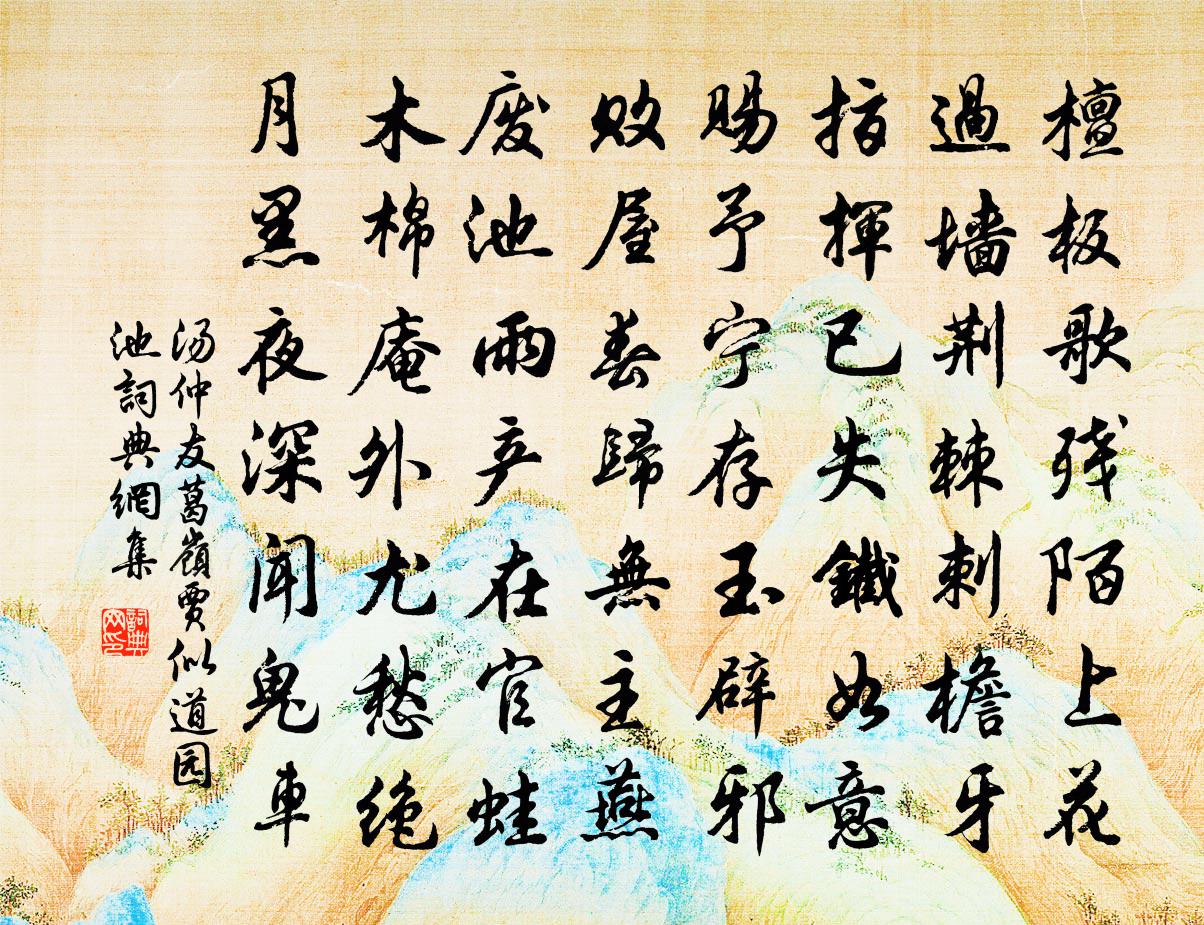 檀板歌残陌上花
過墙荆棘刺檐牙
指揮已失鐵如意
賜予宁存玉辟邪
敗屋春歸無主燕
废池雨产在官蛙
木棉庵外尤愁绝
月黑夜深聞鬼車
汤仲友葛嶺賈似道园
池詞典網集
詞典网印